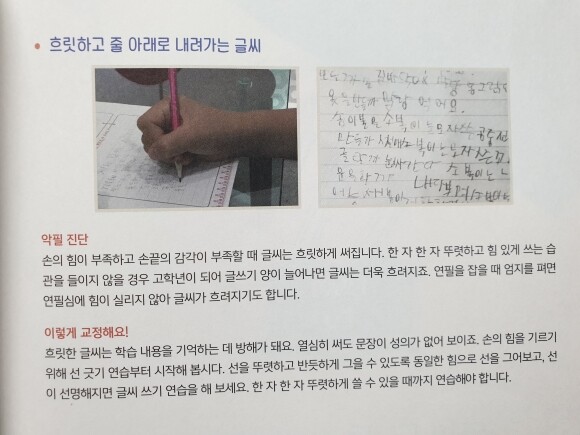 흐릿하고 줄 아래로 내려가는 글씨
악필 진단
손의 힘이 부족하고 손끝의 감각이 부족할 때 글씨는 흐릿하게 써집니다. 한 자 한 자 뚜렷하고 힘 있게 쓰는 습
관을 들이지 않을 경우 고학년이 되어 글쓰기 양이 늘어나면 글씨는 더욱 흐려지죠. 연필을 잡을 때 엄지를 펴면
연필심에 힘이 실리지 않아 글씨가 흐려지기도 합니다.
이렇게 교정해요!
흐릿한 글씨는 학습 내용을 기억하는 데 방해가 돼요. 열심히 써도 문장이 성의가 없어 보이죠. 손의 힘을 기르기
위해 선 긋기 연습부터 시작해 봅시다. 선을 뚜렷하고 반듯하게 그을 수 있도록 동일한 힘으로 선을 그어보고, 선
이 선명해지면 글씨 쓰기 연습을 해 보세요. 한 자 한 자 뚜렷하게 쓸 수 있을 때까지 연습해야 합니다.